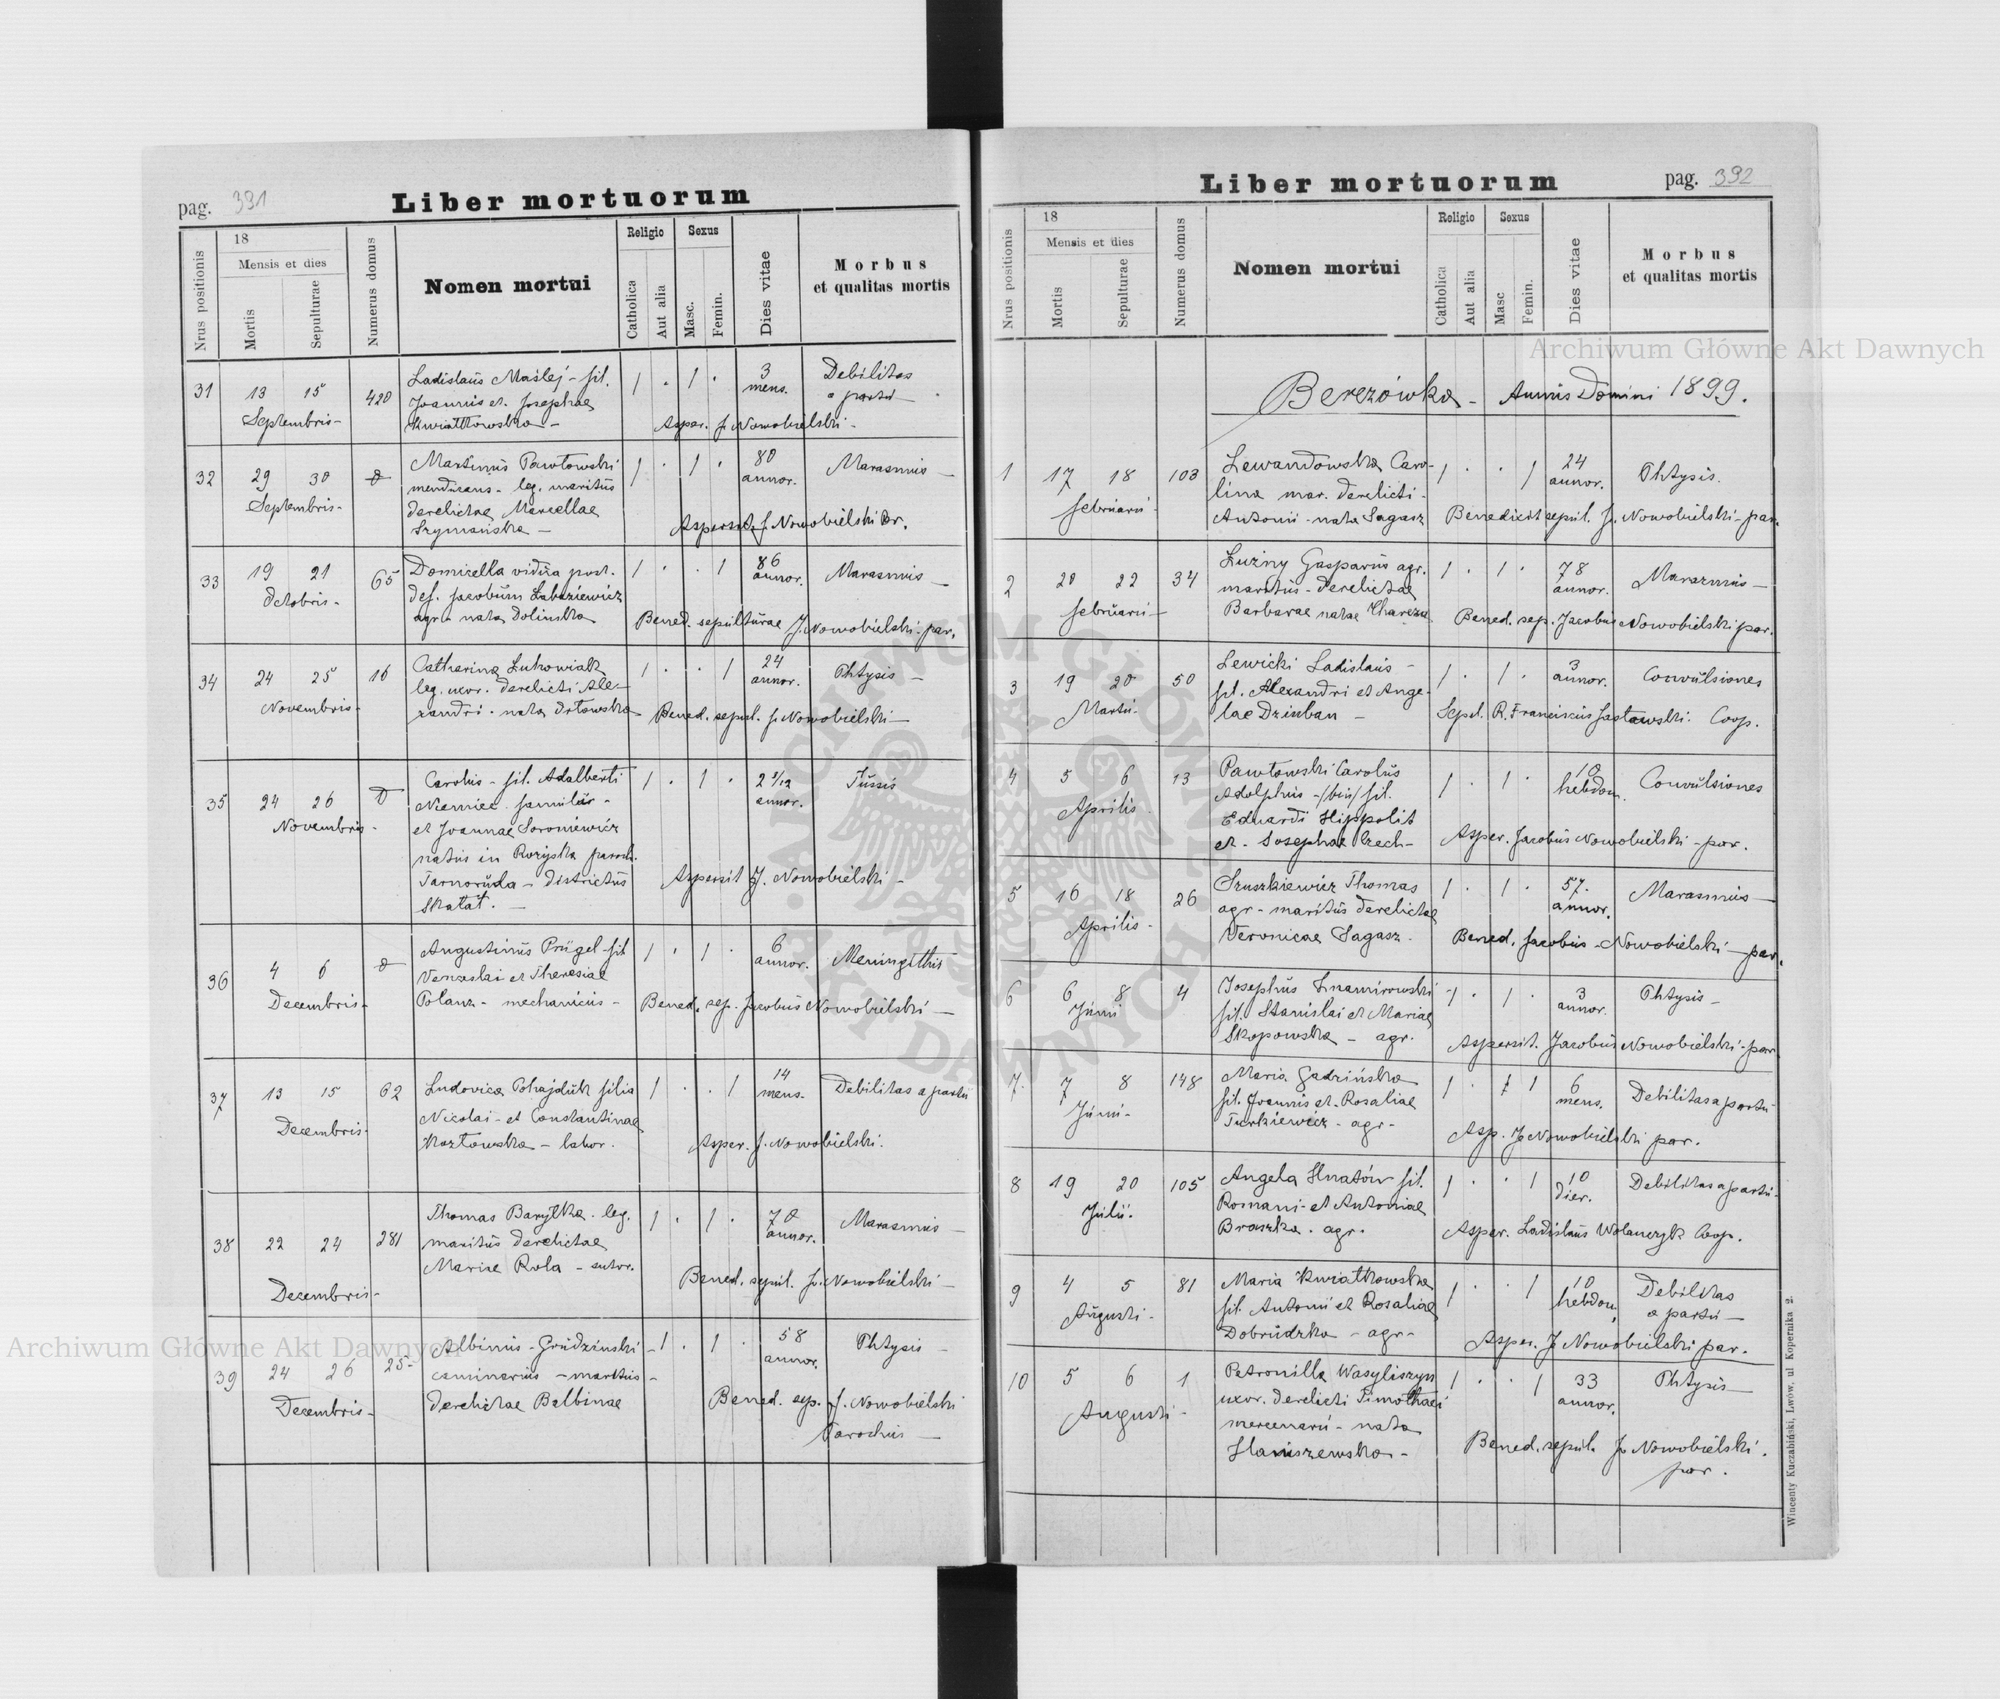 pag. 391
Liber mortuorum
Nrus positionis
18
Mensis et dies
Mortis
Sepulturae
Numerus domus
Nomen mortui
Religio
Catholica
Aut alia
Sexus
Masc.
Femin.
Dies vitae
Morbus
et qualitas mortis
31 13 15 420 Ladislaus Maślej - fil. 1 . 1 . 3 mens. Debilitas
Septembris - Joannis et Josephae a partu
Kwiatkowska - Asper. J. Nowobielski -
32 29 30 Martinus Pawłowski 1 . 1 . 80 annor. Marasmus -
Septembris - mendicans - leg. maritus
derelictae Marcellae
Szymańska - Aspersit J. Nowobielski
33 19 21 65 Domicella vidua post. 1 . . 1 86 annor. Marasmus -
Octobris - def. Jacobum
agr - nata Dolinska Bened. sepulturae J. Nowobielski - par.
34 24 25 16 Catharina 1 . . 1 24 annor. Phtysis -
Novembris - leg. uxor. derelicti Ale-
xandri - nata Orłowska Bened. sepul. J. Nowobielski -
35 24 26 Carolus - fil. Adalberti 1 . 1 . 2 annor. Tussis
Novembris - Niemiec famular -
et Joannae Soroniewicz
natus in Rożyska paroch.
Tarnoruda - districtus Aspersit J. Nowobielski -
Skałat. -
36 4 6 Augustinus Prügel - fil 1 . 1 . 6 annor. Meningithis
Decembris - Venceslai et Theresiae
Polanz - mechanicus - Bened. sep. Jacobus Nowobielski -
37 13 15 62 Ludovica Pohajduk filia 1 . . 1 14 mens. Debilitas a partu
Decembris - Nicolai - et Constantinae
Kozłowska - labor. Asper. J. Nowobielski.
38 22 24 281 Thomas Baryłka - leg. 1 . 1 . 70 annor. Marasmus -
Decembris - maritus derelictae
Mariae Rola - sutor. Bened. sepul. J. Nowobielski -
39 24 26 25 - Albinus - Grudzinski - 1 . 1 . 58 annor. Phtysis -
Decembris - caminarius - maritus -
derelictae Balbinae Bened. sep. J. Nowobielski
Parochus -
Liber mortuorum
pag. 392
Nrus positionis
18
Mensis et dies
Mortis
Sepulturae
Numerus domus
Nomen mortui
Religio
Catholica
Aut alia
Sexus
Masc
Femin.
Dies vitae
Morbus
et qualitas mortis
Berezówka - Annus Domini 1899.
1 17 18 103 Lewandowska Caro- 1 . . 1 24 annor. Phtysis.
februarii - lina mar. derelicti -
Antonii - nata Sagasz Benedixit sepul. J. Nowobielski - par.
2 20 22 34 Luzny Gasparus agr. 1 . 1 . 78 annor. Marazmus -
februarii - maritus - derelictae
Barbarae natae Bened. sep. Jacobus Nowobielski par.
3 19 20 50 Lewicki Ladislaus - 1 . 1 . 3 annor. Convulsiones
Martii - fil. Alexandri et Ange-
lae Dziuban - Sepel. R. Franciscus Coop.
4 5 6 13 Pawłowski Carolus 1 . 1 . 10 hebdom. Convulsiones
Aprilis - Adolphus - /bin/ fil.
Eduardi Hippolit
et - Josephae Czech - Asper. Jacobus Nowobielski - par.
5 16 18 26 Szuszkiewicz Thomas 1 . 1 . 57. annor. Marasmus -
Aprilis - agr - maritus derelictae
Veronicae Sagasz. Bened. Jacobus - Nowobielski - par.
6 6 8 4 Josephus Znamirowski 1 . 1 . 3 annor. Phtysis -
Junii fil. Stanislai et Mariae
Skopowska - agr. Aspersit. Jacobus Nowobielski - par.
7. 7 8 148 Maria Gadzińska 1 . 1 6 mens. Debilitas a partu -
Junii - fil. Joannis et Rosaliae
Turkiewicz - agr - Asp. J. Nowobielski par.
8 19 20 105 Angela Hnatów fil. 1 . . 1 10 dier. Debilitas a partu -
Julii. Romani - et Antoniae
Braszka. agr. Asper. Ladislaus Wolanczyk Coop.
9 4 5 81 Maria Kwiatkowska 1 . . 1 10 hebdom. Debilitas
Augusti - fil. Antonii et Rosaliae a partu -
Dobrudzka - agr - Asper. J. Nowobielski par.
10 5 6 1 Petronilla Wasyliszyn 1 . . 1 33 annor. Phtysis -
Augusti - uxor. derelicti Timothaei
mercenarii - nata
Haniszewska - Bened. sepul. J. Nowobielski.
par.
Wincenty Kuczabiński, Lwów, ul Kopernika 2.
Archiwum Główne Akt Dawnych
Archiwum Główne Akt Dawnych
ARCHIWUM GŁÓWNE AKT DAWNYCH